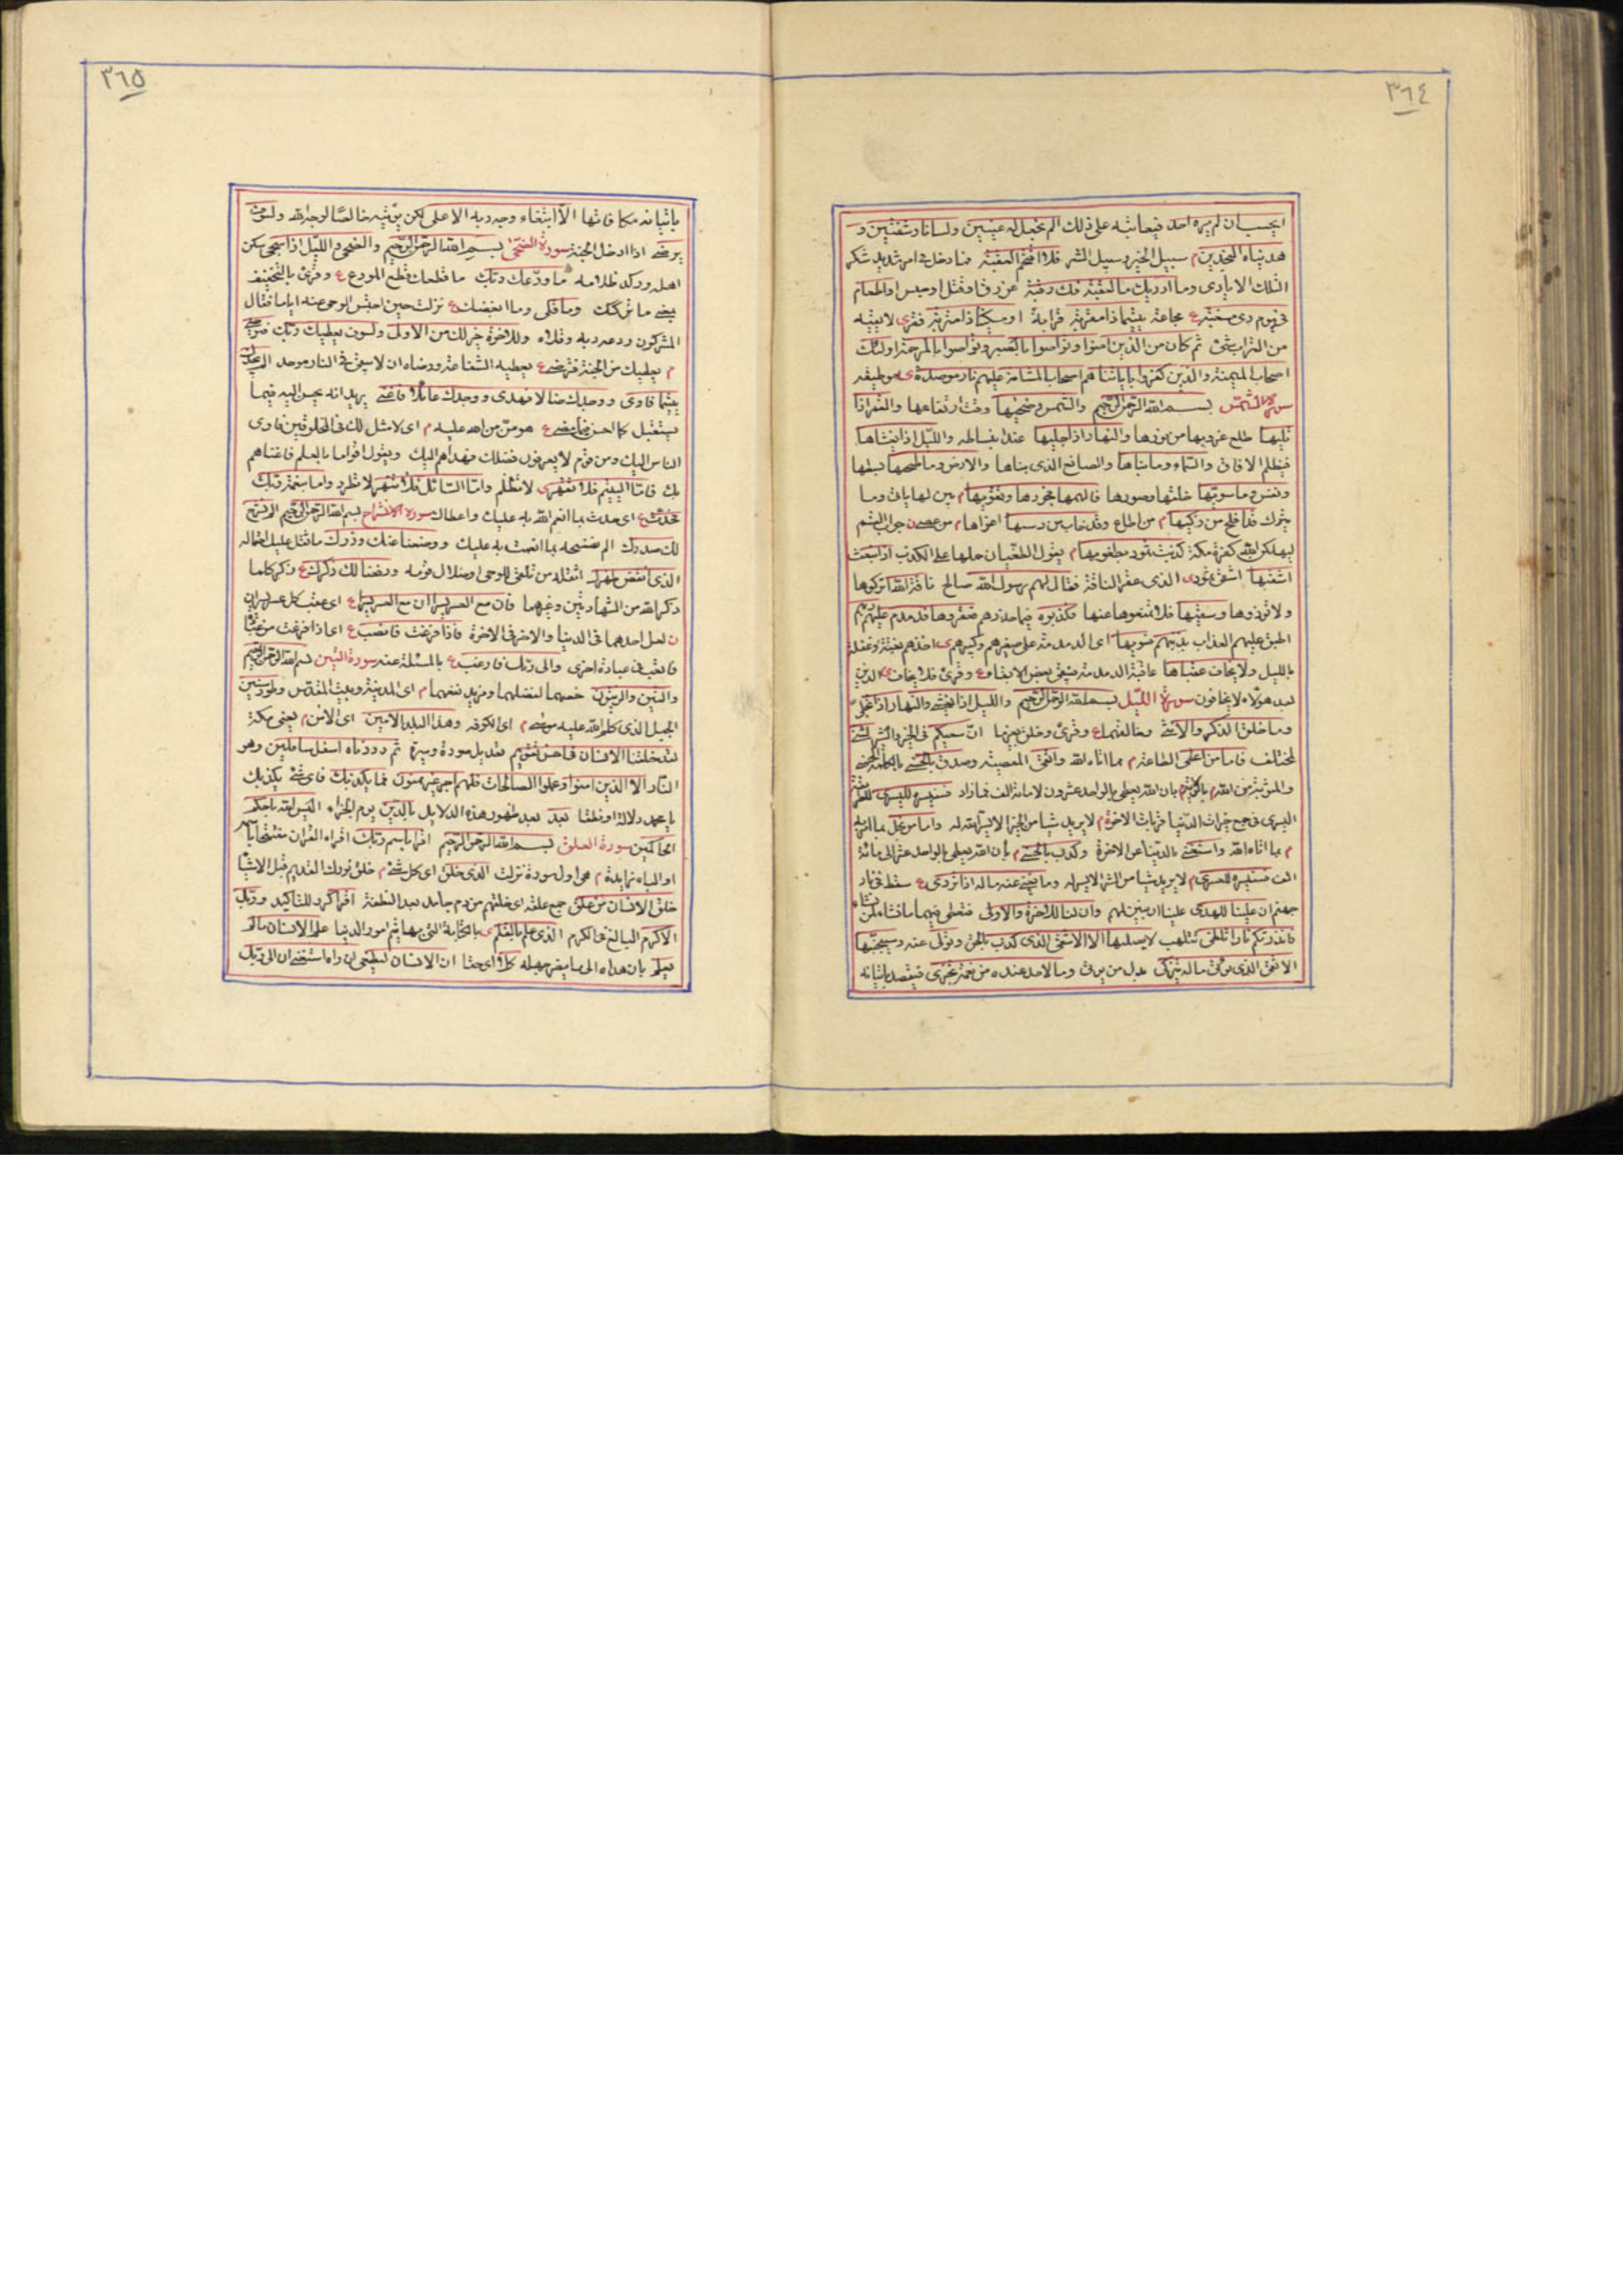 ٣٦٤
ايحسب ان لم يره احد فيعاتبه على ذلك الم نجعل له عينين ولسانا وشفتين و
هديناه النجدين م سبيل الخير وسبيل الشر فلا اقتحم العقبة فما دخل في امر شديد شكر
لتلك الايادي وما ادريك ما العقبة فك رقبة من رق او قتل او حبس او اطعام
في يوم ذي مسغبة ع مجاعة يتيما ذا مقربة قرابة او مسكينا ذا متربة فقر ى لا يقيه
من التراب شئ ثم كان من الذين امنوا وتواصوا بالصبر وتواصوا بالمرحمة اولئك
اصحاب الميمنة والذين كفروا باياتنا هم اصحاب المشامة عليهم نار موصدة ى مطبقه
سورة الشمس بسم الله الرحمن الرحيم والشمس وضحيها وقت ارتفاعها والقمر اذا
تليها طلع غروبها من نورها والنهار اذا جليها عند انبساطه والليل اذا يغشاها
فيظلم الافاق والسماء وما بناها والصانع الذي بناها والارض وما طحيها بسطها
ونفس وما سويها خلقها وصورها فالهمها فجورها وتقويها م بين لها ياتي وما
يترك قد افلح من زكيها م من اطاع وقد خاب من دسيها اغواها م من عصى ن جواب القسم
ليهلكن الله كفرة مكة كذبت ثمود بطغويها م يقول الطغيان حملها على الكذب اذ انبعث
اشقيها اشقى ثمود ى الذي عقر الناقة فقال لهم رسول الله صالح ناقة الله اتركوها
ولا تؤذوها وسقيها فلا تمنعوها عنها فكذبوه فيما حذرهم فعقروها فدمدم عليهم ربهم
اطبق عليهم العذاب بذنبهم فسويها اي الدمدمة على صغيرهم وكبيرهم ى اخذهم بغتة وغفلة
بالليل ولا يخاف عقباها عاقبة الدمدمة فيبقي بعض الابقاء ع وقرئ فلا يخاف ى الذين
بعد هؤلاء لا يخافون سورة الليل بسم الله الرحمن الرحيم والليل اذا يغشى والنهار اذا تجلى
وما خلق الذكر والانثى وخالقهما ع وقرئ وخلق بغير ما ان سعيكم في الخير والشر لشتى
لمختلف فاما من اعطى الطاعة م مما اتاه الله واتقى المعصية وصدق بالحسنى بالكلمة الحسنى
والمثوبة من الله م بالولاية م بان الله يعطي بالواحد عشرة الى مائة الف فما زاد فسنيسره لليسرى
اليسرى في جمع خيرات الدنيا قربات الاخرة م لا يريد شيئا من الخير الا يسره الله له واما من بخل بما امر به
م بما اتاه الله واستغنى بالدنيا عن الاخرة وكذب بالحسنى م بان الله يعطي بالواحد عشر الى مائة
الف فسنيسره للعسرى م لا يريد شيئا من الشر الا يسر له وما يغني عنه ماله اذا تردى ع سقط في نار
جهنم ان علينا للهدى علينا ان نبين لهم وان لنا للاخرة والاولى فنعطي فيهما ما نشاء لمن نشاء
فانذرتكم نارا تلظى تتلهب لا يصليها الا الاشقى الذي كذب بالحق وتولى عنه وسيجنبها
الاتقى الذي يؤتي ماله يتزكى بدل من يؤتي وما لاحد عنده من نعمة تجزى فيقصد باتيانه
٣٦٥
باتيانه مكافاتها الا ابتغاء وجه ربه الاعلى لكن يؤتيه خالصا لوجه الله ولسوف
يرضى اذا ادخل الجنة سورة الضحى بسم الله الرحمن الرحيم والضحى والليل اذا سجى سكن
اهله وركد ظلامه ما ودعك ربك ما قطعك قطع المودع ع وقرئ بالتخفيف
يعني ما تركك وما قلى وما ابغضك ع نزلت حين احتبس الوحي عنه اياما فقال
المشركون ودعه ربه وقلاه وللاخرة خير لك من الاولى ولسوف يعطيك ربك فترضى
م يعطيك من الجنة فترضى ع يعطيه الشفاعة ورضاه ان لا يبقى في النار موحد الم يجدك
يتيما فاوى ووجدك ضالا فهدى ووجدك عائلا فاغنى يريد انه يحسن اليه فيما
يستقبل كما احسن فيما مضى ع هو من من الله عليه م اي لا مثل لك في المخلوقين فاوى
الناس اليك ومن قوم لا يعرفون فضلك فهداهم اليك ويقول اقواما بالعلم فاغناهم
بك فاما اليتيم فلا تقهر ى لا تظلم واما السائل فلا تنهر لا تطرد واما بنعمة ربك
فحدث ع اي حدث بما انعم الله به عليك واعطاك سورة الانشراح بسم الله الرحمن الرحيم الم نشرح
لك صدرك الم نفسحه بما انعمت به عليك ووضعنا عنك وزرك ما ثقل عليك احتماله
الذي انقض ظهرك اثقله من تلقي الوحي او ضلال قومه ورفعنا لك ذكرك ع ذكر كلما
ذكر الله من الشهادتين وغيرهما فان مع العسر يسرا ان مع العسر يسرا ع اي عقب كل عسر يسران
ن لعل احدهما في الدنيا والاخر في الاخرة فاذا فرغت فانصب ع اي اذا فرغت من عبادة
فاتعب في عبادة اخرى والى ربك فارغب ع بالمسئلة عنه سورة التين بسم الله الرحمن الرحيم
والتين والزيتون خصهما لفضلهما ومزيد نفعهما م اي المدينة وبيت المقدس وطور سينين
الجبل الذي كلم الله عليه موسى م اي الكوفه وهذا البلد الامين اي الامن م يعني مكة
لقد خلقنا الانسان في احسن تقويم تعديل صورة وسيرة ثم رددناه اسفل سافلين وهو
النار الا الذين امنوا وعملوا الصالحات فلهم اجر غير ممنون فما يكذبك فاي شئ يكذبك
يا محمد دلالة او نطقا بعد بعد ظهور هذه الدلايل بالدين يوم الجزاء اليس الله باحكم
الحاكمين سورة العلق بسم الله الرحمن الرحيم اقرا باسم ربك اقراء القران مفتتحا باسم
او الباء زايدة م هي اول سورة نزلت الذي خلق اي كل شئ م خلق نورك القديم قبل الاشيا
خلق الانسان من علق جمع علقة اي خلقهم من دم جامد بعد النطفة اقرا كرر للتاكيد وربك
الاكرم البالغ في الكرم الذي علم بالقلم ى بالكتابة التي بها يتم امور الدنيا علم الانسان ما لم
يعلم بان هداه الى ما يضر جهله كلا اي حقا ان الانسان ليطغى ان راه استغنى ان الى ربك